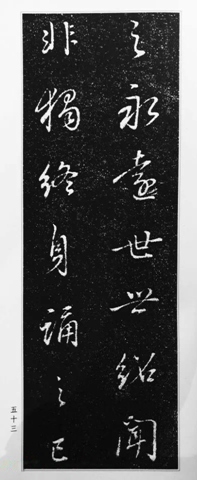 之永遠世世紹聞
非獨終身誦之已
五十三